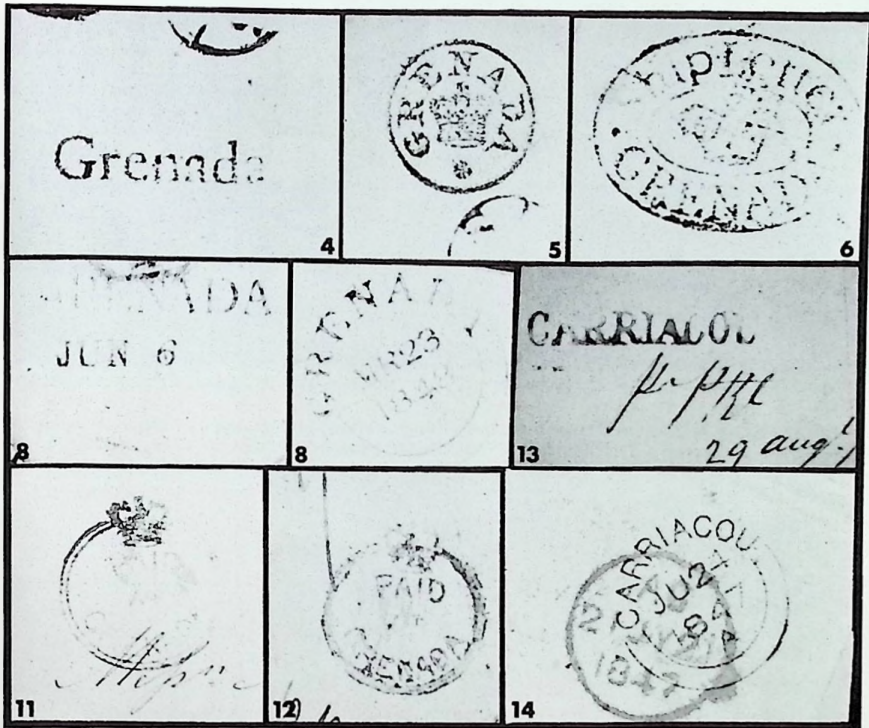 Grenada
4
GRENADA
5
Ship Letter
GRENADA
6
GRENADA
JUN 6
8
GRENADA
MR 23
8
CARRIACOU
29 aug
13
11
PAID
AT
GRENADA
12
CARRIACOU
JU 27
184
1847
14